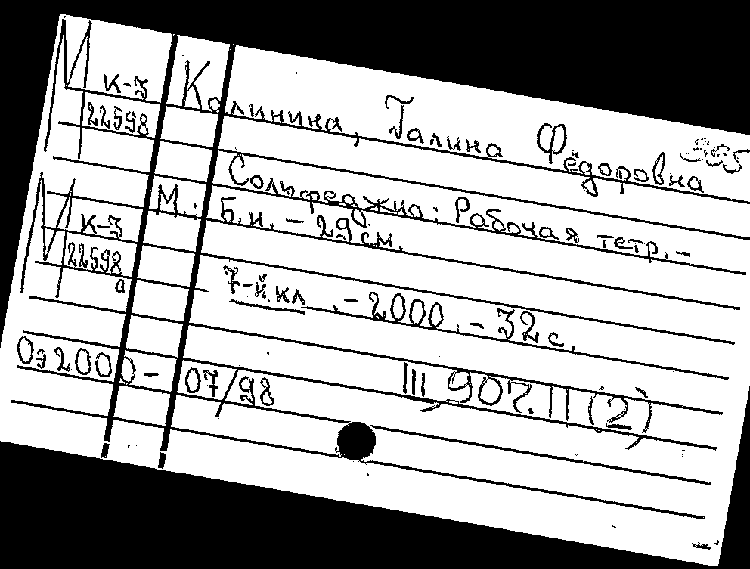 М к-3
22598
Калинина, Галина Фёдоровна
365
Сольфеджио: Рабочая тетр. –
М.: Б.и. – 29 см.
М к-3
22598
а
7-й кл. – 2000. – 32 с.
Оэ 2000 – 07/98
III, 907. II (2)